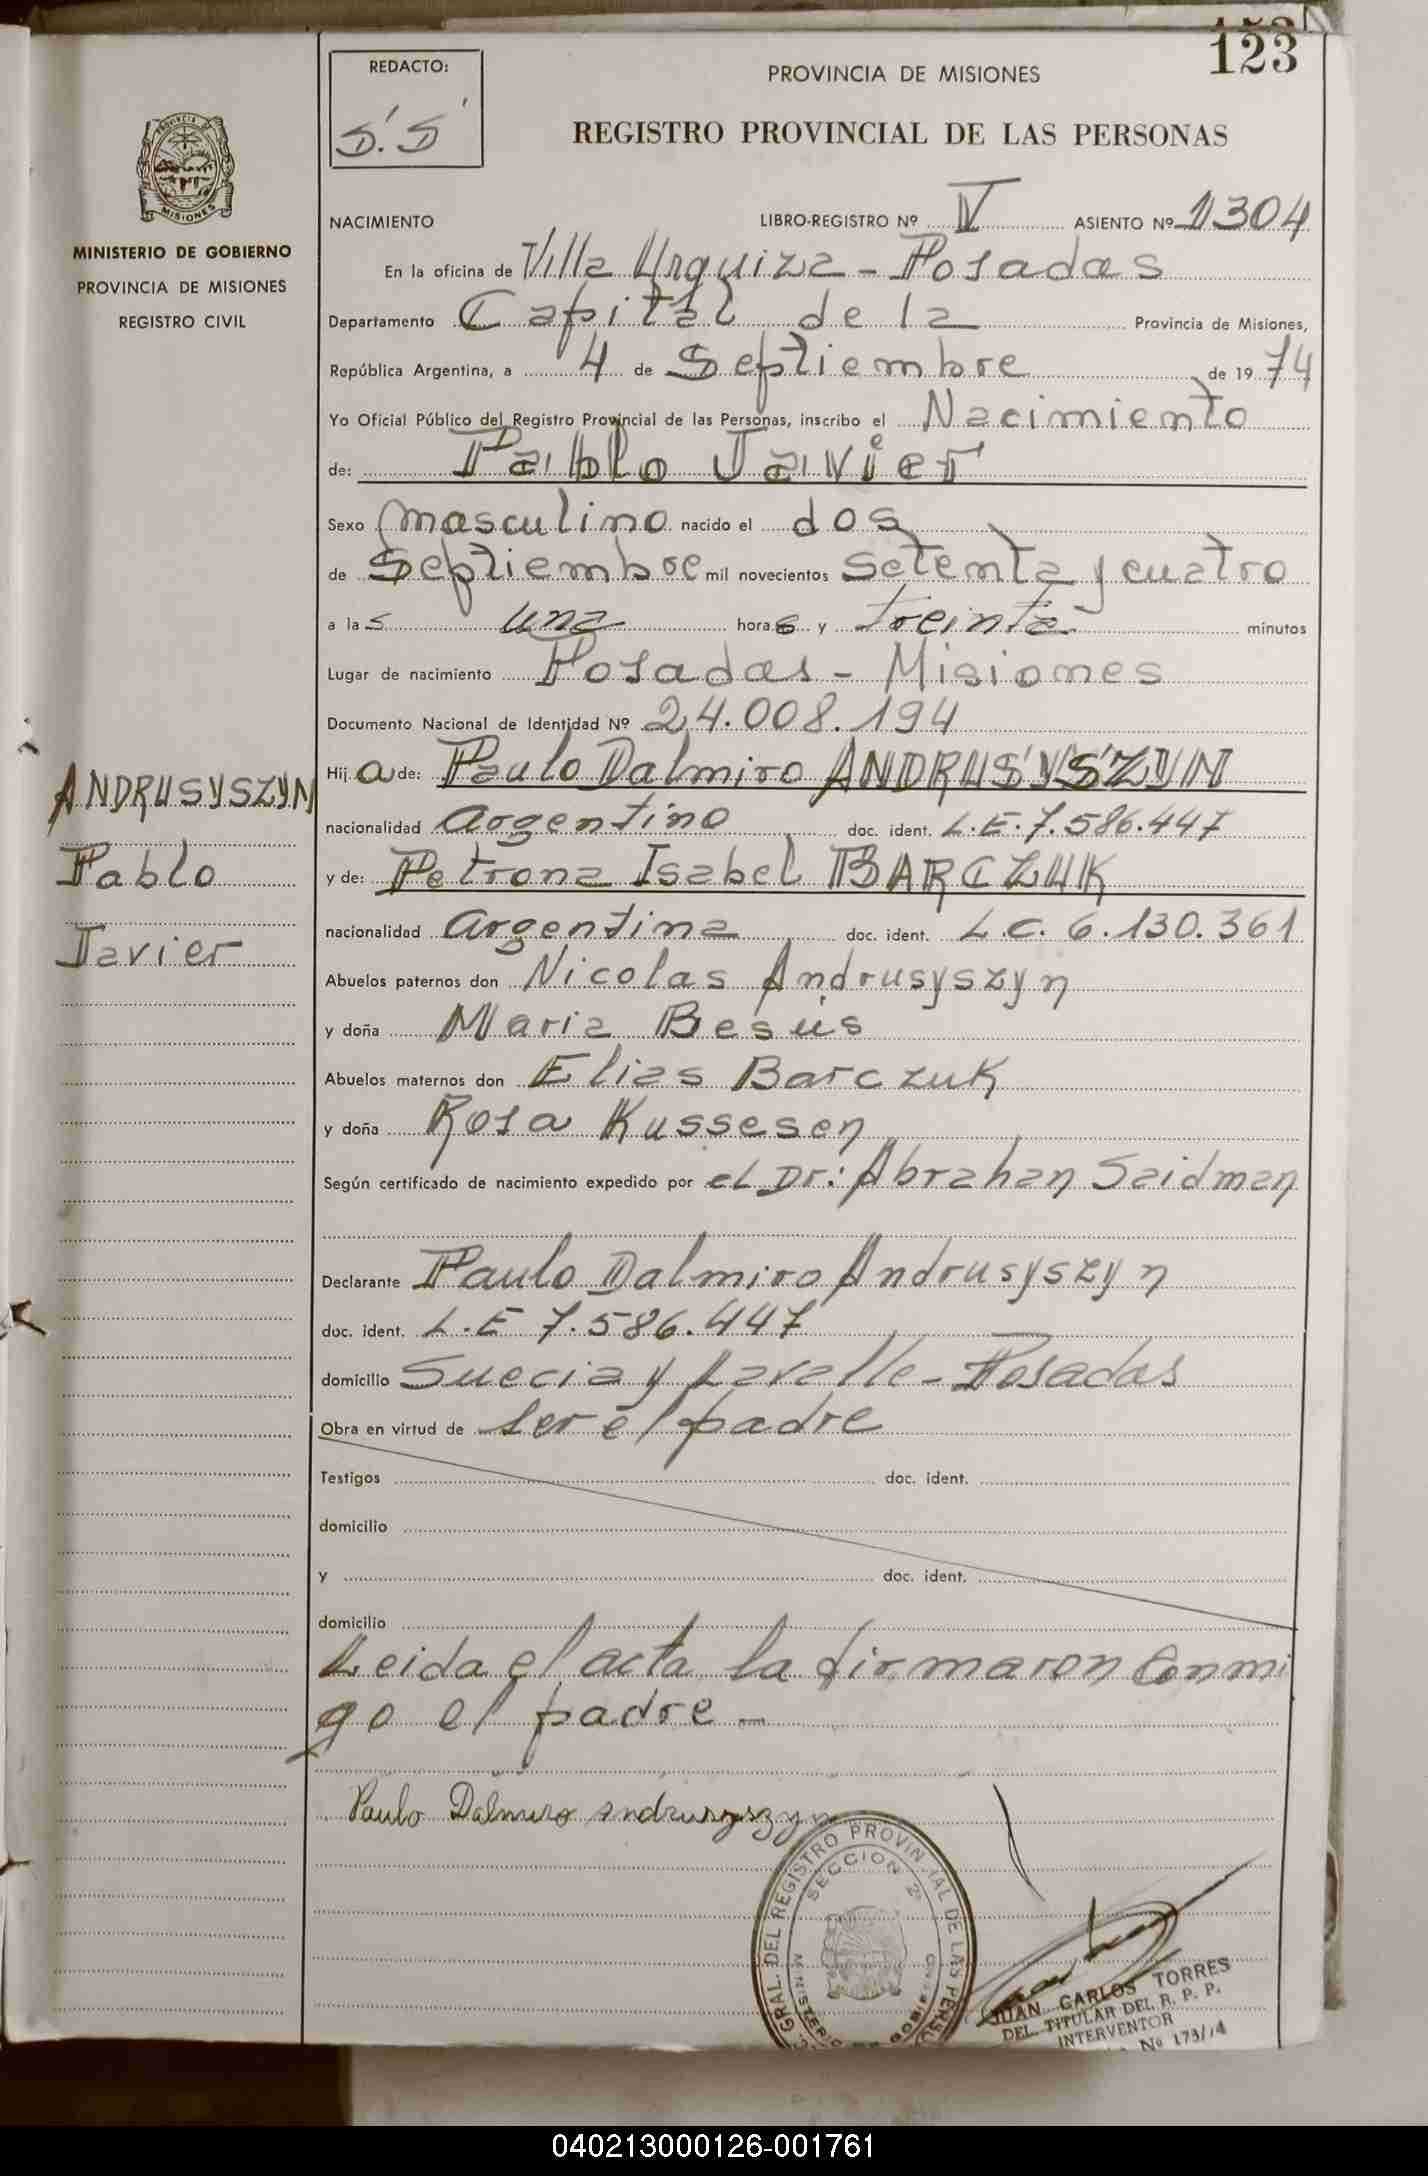 123
REDACTO:
S.S
PROVINCIA DE MISIONES
REGISTRO PROVINCIAL DE LAS PERSONAS
MINISTERIO DE GOBIERNO
PROVINCIA DE MISIONES
REGISTRO CIVIL
NACIMIENTO LIBRO-REGISTRO Nº V ASIENTO Nº 1304
En la oficina de Villa Urquiza - Posadas
Departamento Capital de la Provincia de Misiones,
República Argentina, a 4 de Septiembre de 1974
Yo Oficial Público del Registro Provincial de las Personas, inscribo el Nacimiento
de: Pablo Javier
Sexo masculino nacido el dos
de Septiembre mil novecientos setenta y cuatro
a las una horas y treinta minutos
Lugar de nacimiento Posadas - Misiones
Documento Nacional de Identidad Nº 24.008.194
Hijo de: Paulo Dalmiro ANDRUSYSZYN
nacionalidad argentino doc. ident. L.E. 7.586.447
y de: Petrona Isabel BARCZUK
nacionalidad argentina doc. ident. L.C. 6.130.361
Abuelos paternos don Nicolas Andrusyszyn
y doña Maria Besus
Abuelos maternos don Elias Barczuk
y doña Rosa Kussesen
Según certificado de nacimiento expedido por el Dr: Abrahan Saidman
Declarante Paulo Dalmiro Andrusyszyn
doc. ident. L.E 7.586.447
domicilio Suecia y Lavalle - Posadas
Obra en virtud de ser el padre
Testigos doc. ident.
domicilio
y doc. ident.
domicilio
Leida el acta la firmaron Conmi
go el padre -
Paulo Dalmiro Andrusyszyn
ANDRUSYSZYN
Pablo
Javier
GRAL. DEL REGISTRO PROVINCIAL DE LAS PERS
SECCION 2ª
MINISTERIO DE GOBIERNO
JUAN CARLOS TORRES
DEL. TITULAR DEL R. P. P.
INTERVENTOR
Nº 173/74
040213000126-001761